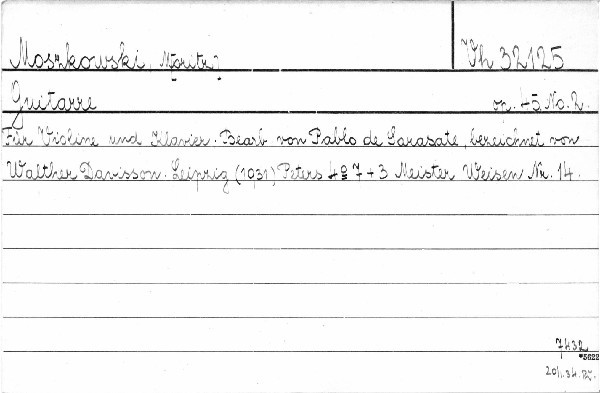 Moszkowski, Moritz] Vh 32125
Guitarre op. 45 No. 2.
Für Violine und Klavier. Bearb. von Pablo de Sarasate, bezeichnet von
Walther Davisson. Leipzig (1931) Peters 4° 7+3 Meister Weisen Nr. 14.
7432
*5622
20/1.34.